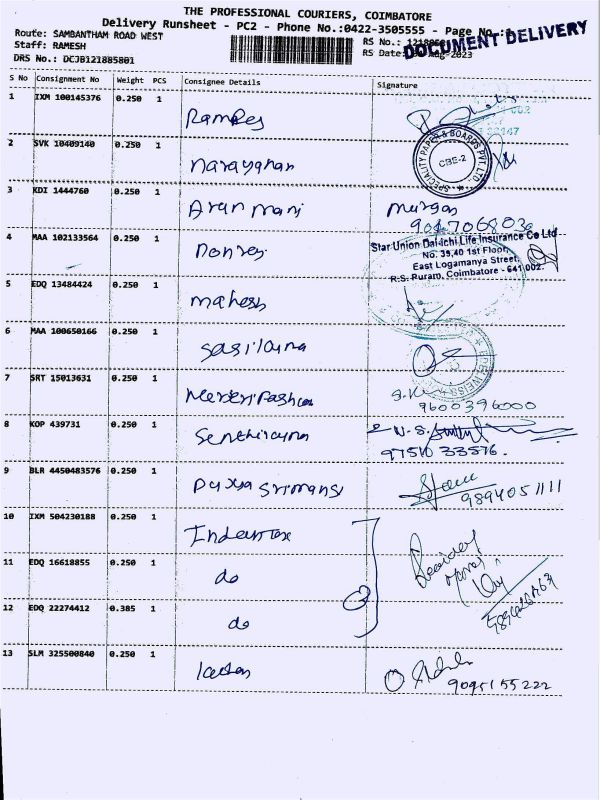 THE PROFESSIONAL COURIERS, COIMBATORE
Delivery Runsheet - PC2 - Phone No.:0422-3505555 - Page No.:
Route: SAMBANTHAM ROAD WEST
RS No.:
DOCUMENT DELIVERY
Staff: RAMESH
RS Date: Aug-2023
DRS No.: DCJB121885801
S No Consignment No Weight PCS Consignee Details Signature
1 IXM 100145376 0.250 1
2 SVK 10409140 0.250 1 Narayanan
SPECIALITY PAPER & BOARDS PVT. LTD. CBE-2
3 KDI 1444760 0.250 1 Arun mani Murgan
4 MAA 102133564 0.250 1
Star Union Dai-ichi Life Insurance Co Ltd
No. 39,40 1st Floor,
East Logamanya Street,
R.S. Puram, Coimbatore - 641 002.
5 EDQ 13484424 0.250 1 mahesh
6 MAA 100650166 0.250 1
7 SRT 15013631 0.250 1
9600396000
8 KOP 439731 0.250 1 N.S.
97510 33576.
9 BLR 4450483576 0.250 1
9894051111
10 IXM 504230188 0.250 1
11 EDQ 16618855 0.250 1 do
12 EDQ 22274412 0.385 1 do
13 SLM 325500840 0.250 1
9095155222